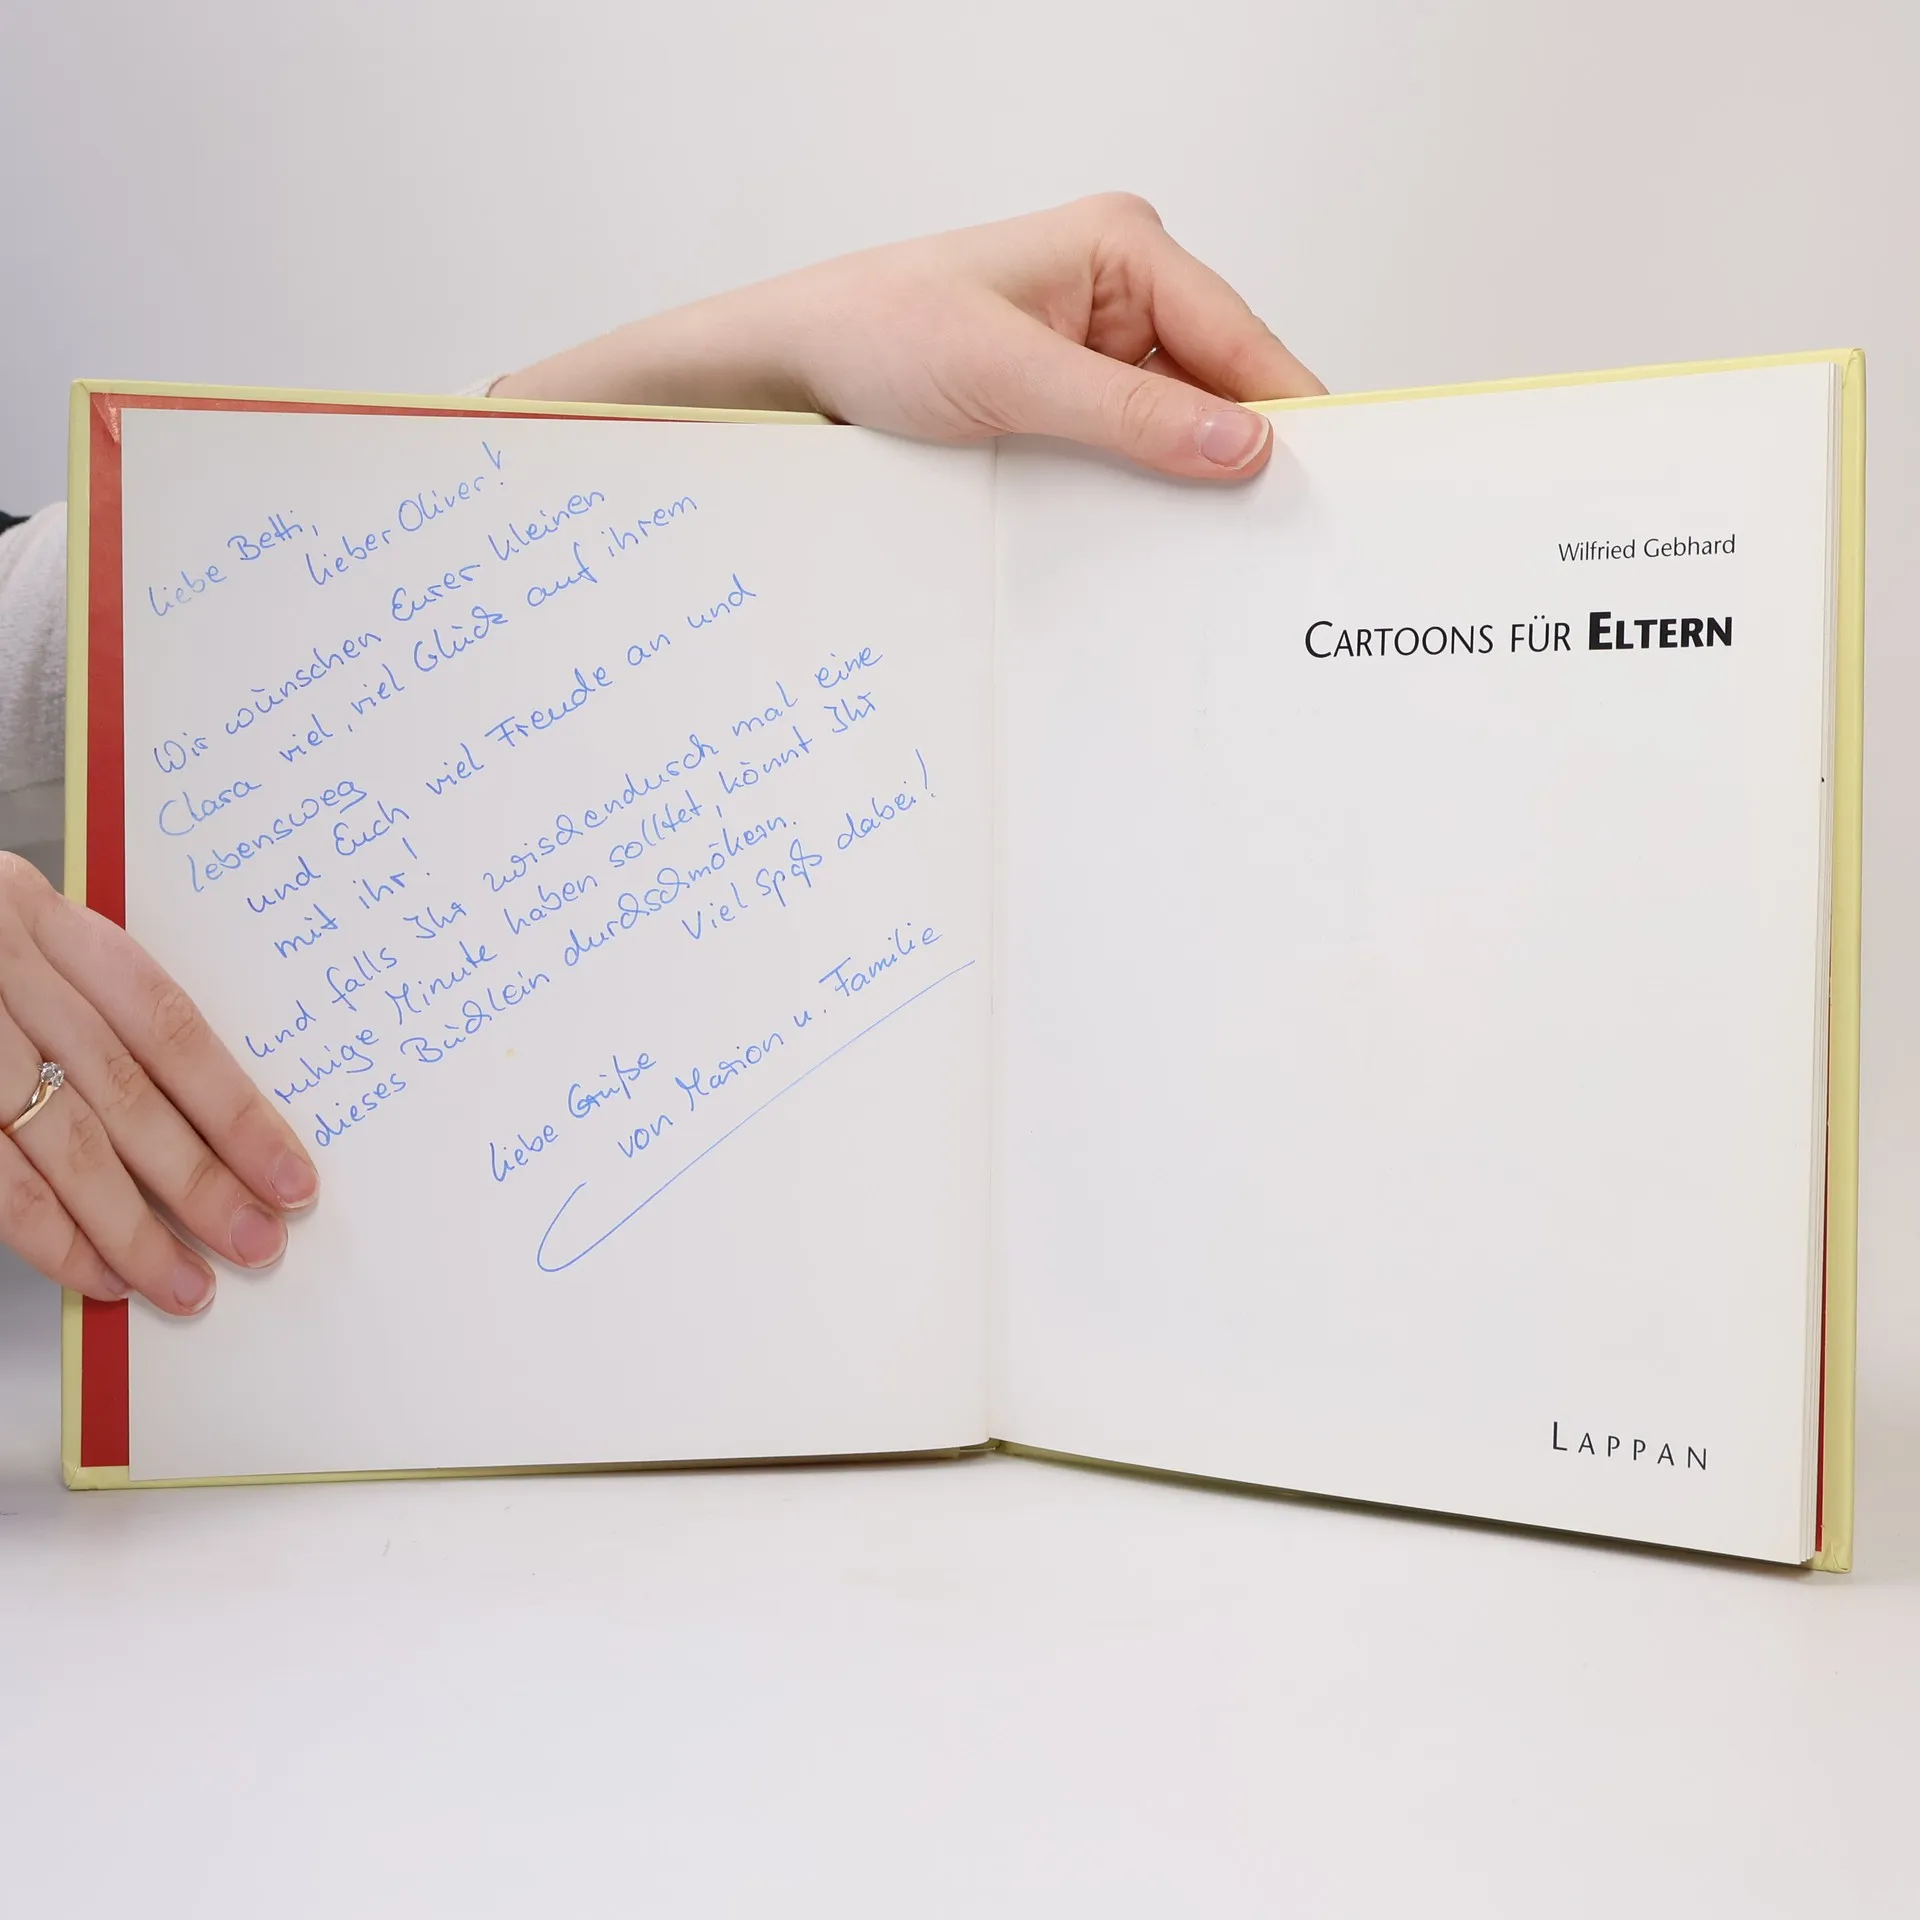 liebe Betti,
lieber Oliver!
Wir wünschen Eurer kleinen
Clara viel, viel Glück auf ihrem
Lebensweg
und Euch viel Freude an und
mit ihr!
Und falls Ihr zwischendurch mal eine
ruhige Minute haben solltet, könnt Ihr
dieses Büchlein durchschmökern.
Viel Spaß dabei!
liebe Grüße
von Marion u. Familie
Wilfried Gebhard
CARTOONS FÜR ELTERN
LAPPAN